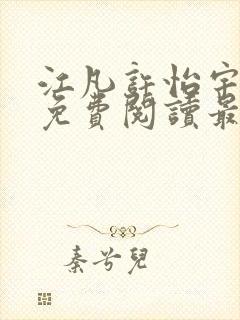 江凡許怡寧
免費閱讀最
秦兮兒